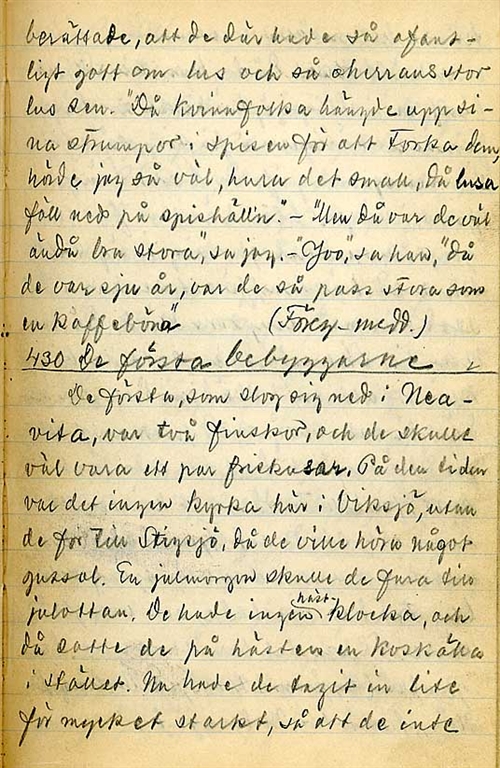 berättade, att de där hade så ofant-
ligt gott om lus och så oherrans stor
lus sen. "Då kvinnfolka hängde upp si-
na strumpor i spisen för att torka dem,
hörde jag så väl, hura det small, då lusa
föll ned på spishäll'n." - "Men då var de väl
ändå bra stora", sa jag. - "Joo", sa han, "då
de var sju år, var de så pass stora som
en kaffeböna" (Förg. medd.)
430 De första bebyggarne
De första, som slog sig ned i Nea-
vita, var två finskor, och de skulle
väl vara ett par friskusar. På den tiden
var det ingen kyrka här i Viksjö, utan
de for till Stigsjö, då de ville höra något
gussol. En julmorgon skulle de fara till
julottan. De hade ingen häst-klocka, och
då satte de på hästen en koskälla
i stället. Nu hade de tagit in lite
för mycket starkt, så att de inte